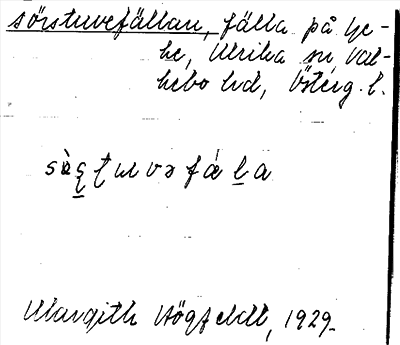 sörstuvefällan, fälla på Yc-
ke, Ulrika sn, Val-
kebo hd, Österg. l.
Margith Högfeldt, 1929.